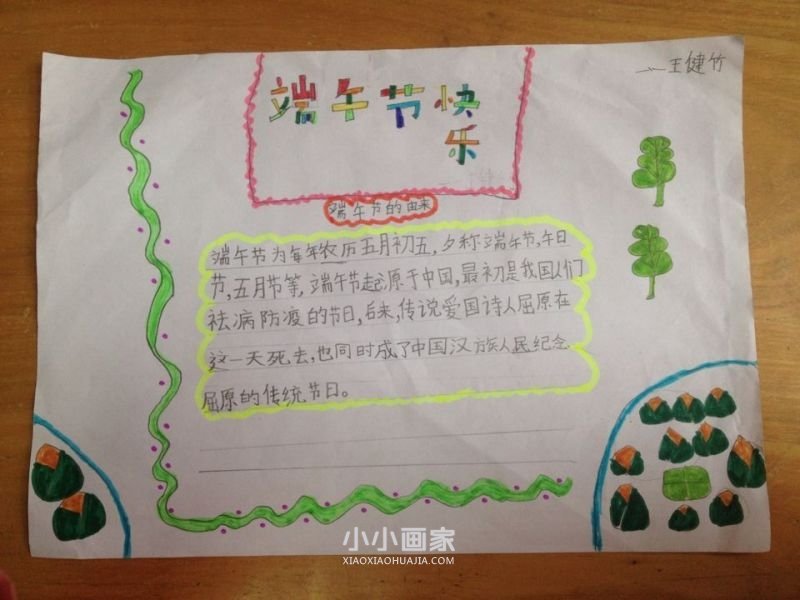 王健竹
端午节快
乐
端午节的由来
端午节为每年农历五月初五，夕称端午节，午日
节，五月节等，端午节起源于中国，最初是我国人们
祛病防疫的节日，后来，传说爱国诗人屈原在
这一天死去，也同时成了中国汉族人民纪念
屈原的传统节日。
小小画家
XIAOXIAOHUAJIA.COM